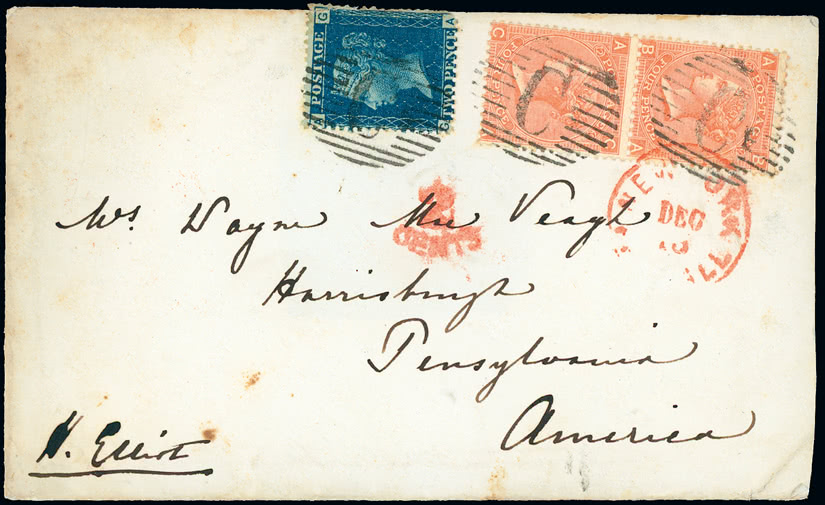 POSTAGE
TWO PENCE
G A
A G
C A
FOUR PENCE
A C
B A
POSTAGE
FOUR PENCE
A B
C
C
NEW YORK
DEC
ALL
CENTS
Mrs Wayne Mac Veagh
Harrisburgh
Pensylvania
America
H. Elliot